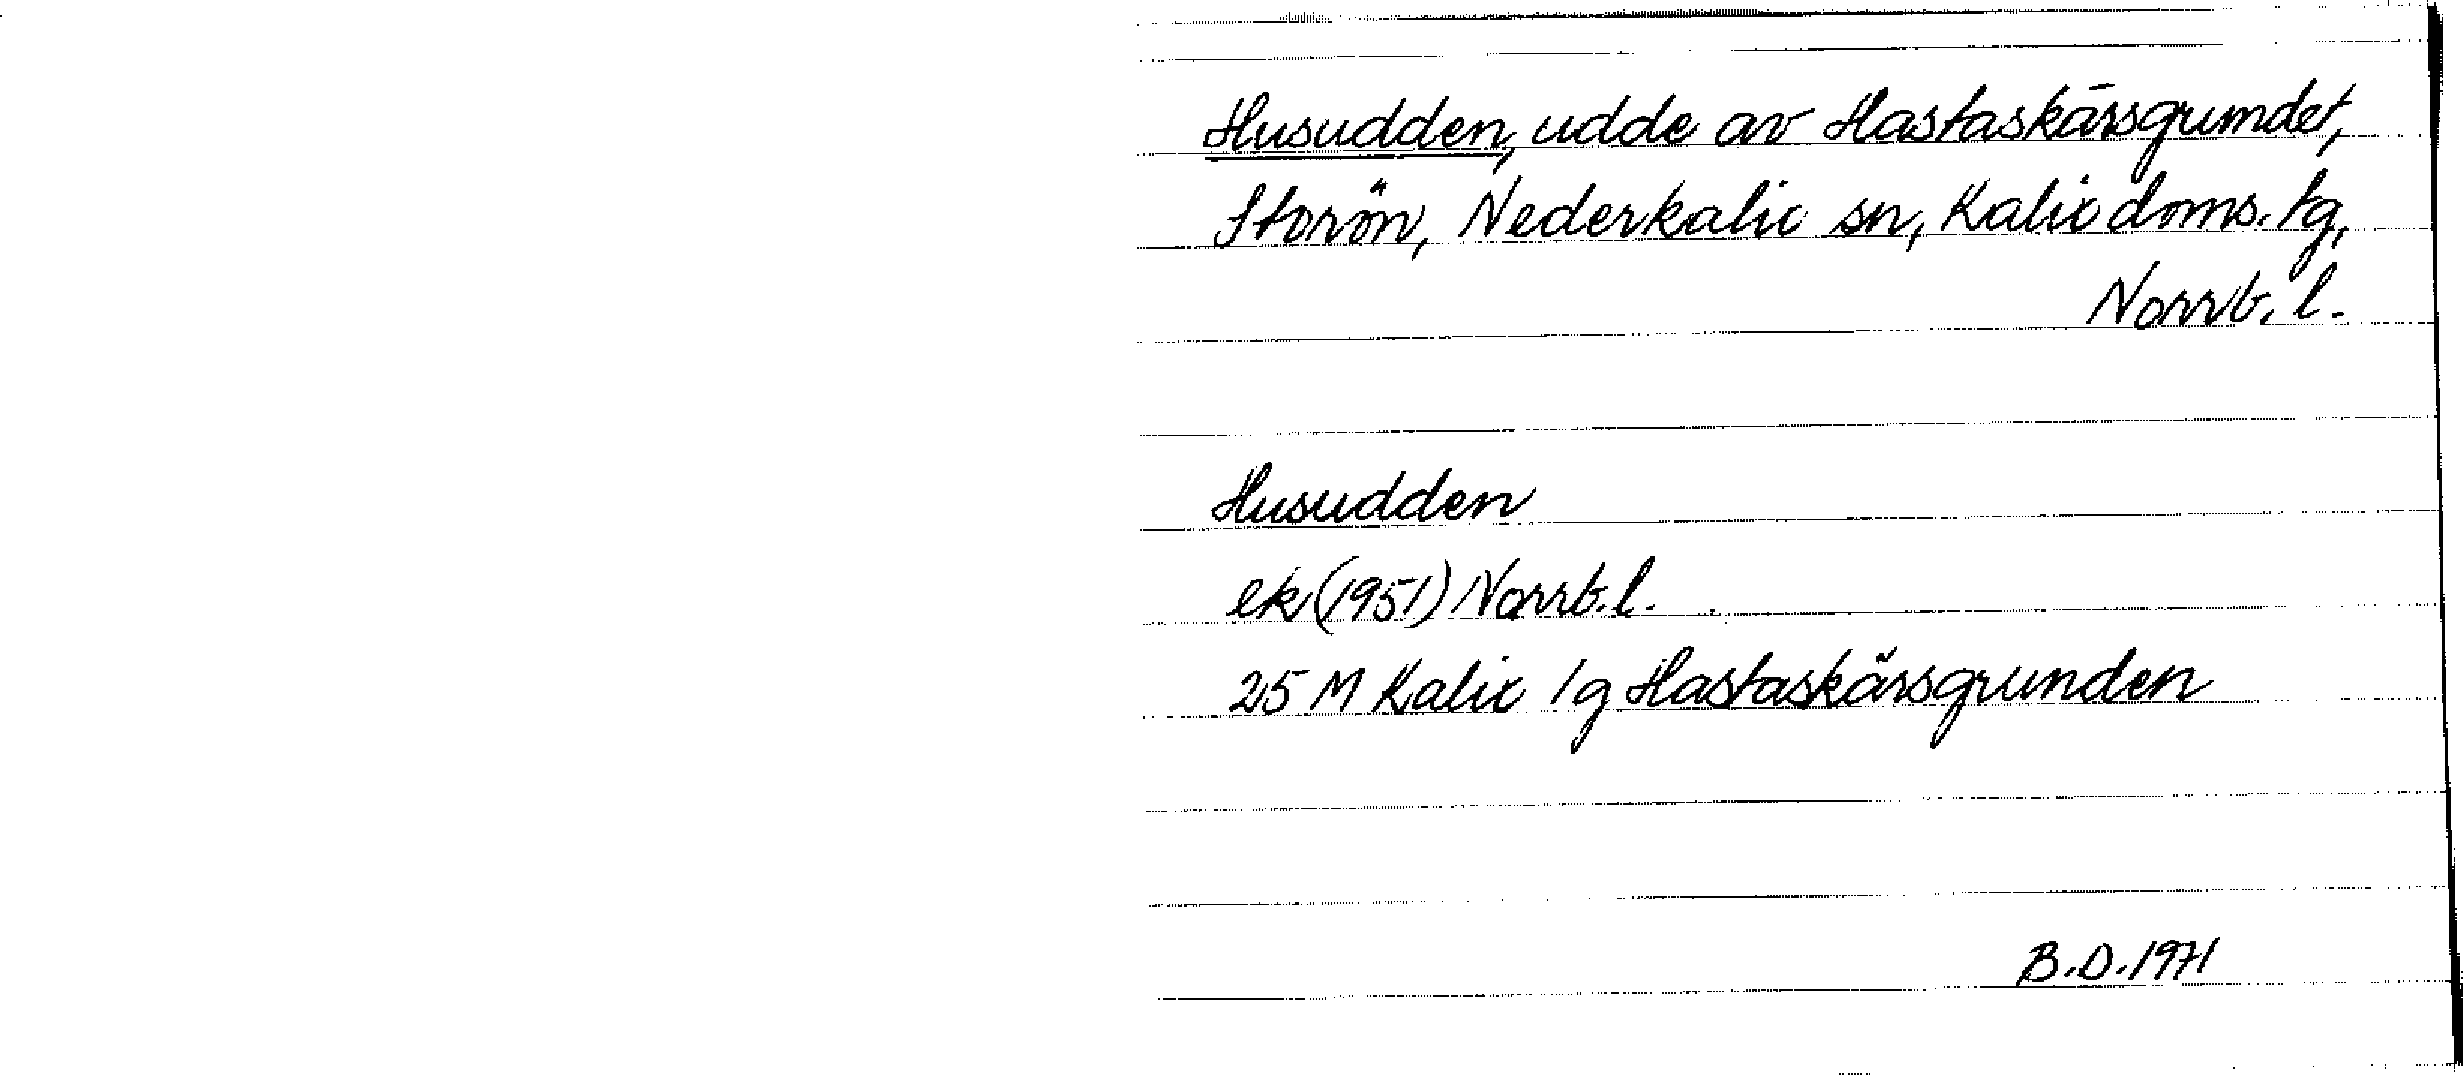 Husudden, udde av Hastaskärsgrundet,
Storön, Nederkalix sn, Kalix doms. tg,
Norrb. l.
Husudden
ek (1951) Norrb. l.
25 M Kalix 1g Hastaskärsgrunden
B.D. 1971